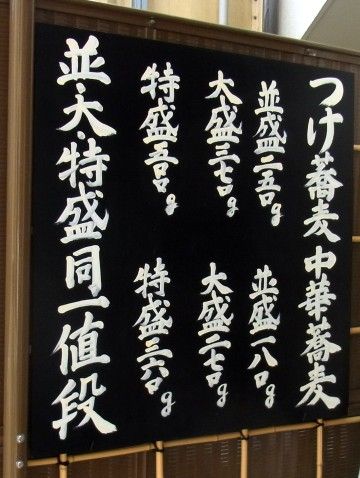 つけ蕎麦 中華蕎麦
並盛二五〇g 並盛一八〇g
大盛三七〇g 大盛二七〇g
特盛五〇〇g 特盛三六〇g
並・大・特盛同一値段